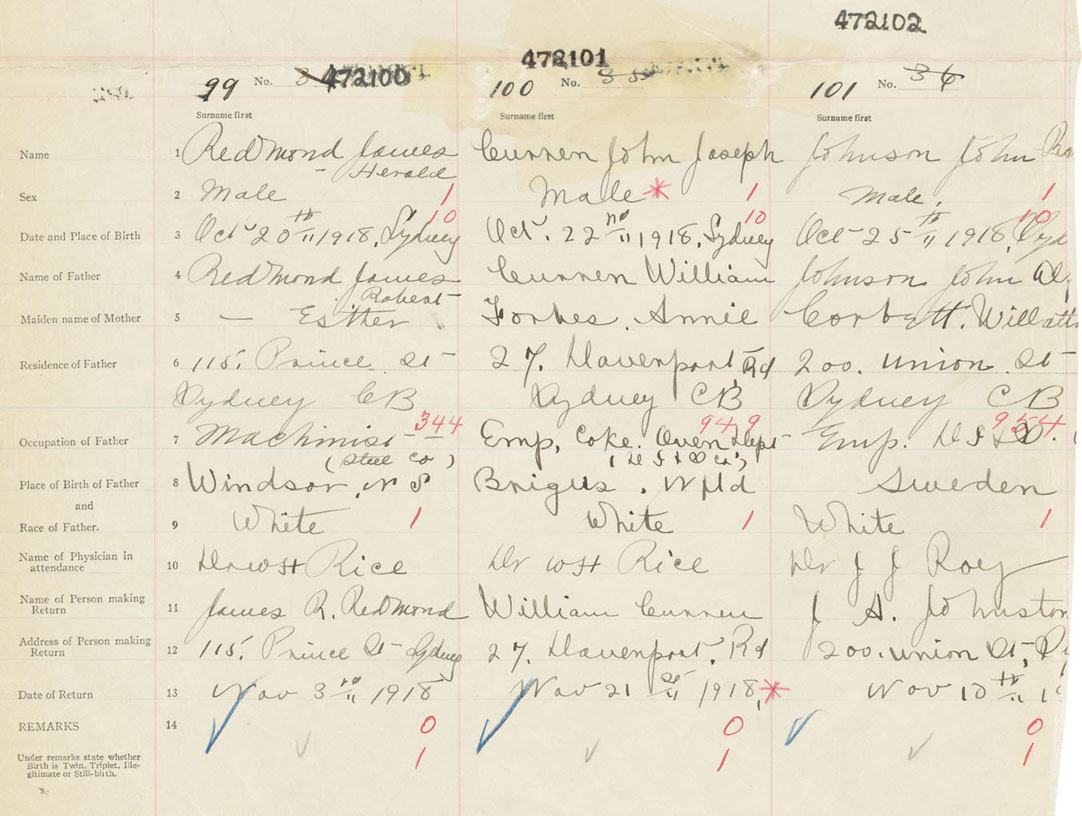 472102
472101
472100
99 No. 3
100 No.
101 No. 36
Surname first
Surname first
Surname first
Name 1 Redmond James Curren John Joseph Johnson John
Herald
Sex 2 Male 1 Male * 1 Male, 1
10 10 10
Date and Place of Birth 3 Oct 20th 1918, Sydney Oct. 22nd 1918, Sydney Oct 25th 1918, Syd
Name of Father 4 Redmond James Curren William Johnson John
Robert
Maiden name of Mother 5 — Esther Forbes, Annie Corbett, Willatts
Residence of Father 6 115, Prince St 27, Davenport Rd 200, Union St
Sydney CB Sydney CB Sydney CB
344 949 954
Occupation of Father 7 Machinist Emp, Coke Oven Dept Emp. D I & S.
(Steel Co) (D I & S Co)
Place of Birth of Father 8 Windsor, N S Brigus, Nfld Sweden
and
Race of Father. 9 White 1 White 1 White 1
Name of Physician in
attendance 10 Dr W H Rice Dr W H Rice Dr J J Roy
Name of Person making
Return 11 James R. Redmond William Curren J A. Johnston
Address of Person making
Return 12 115, Prince St Sydney 27, Davenport, Rd 200, Union St,
Date of Return 13 Nov 3rd 1918 Nov 21st 1918, * Nov 10th
REMARKS 14 0 0 0
Under remarks state whether
Birth is Twin, Triplet, Ille-
gitimate or Still-birth.
1 1 1